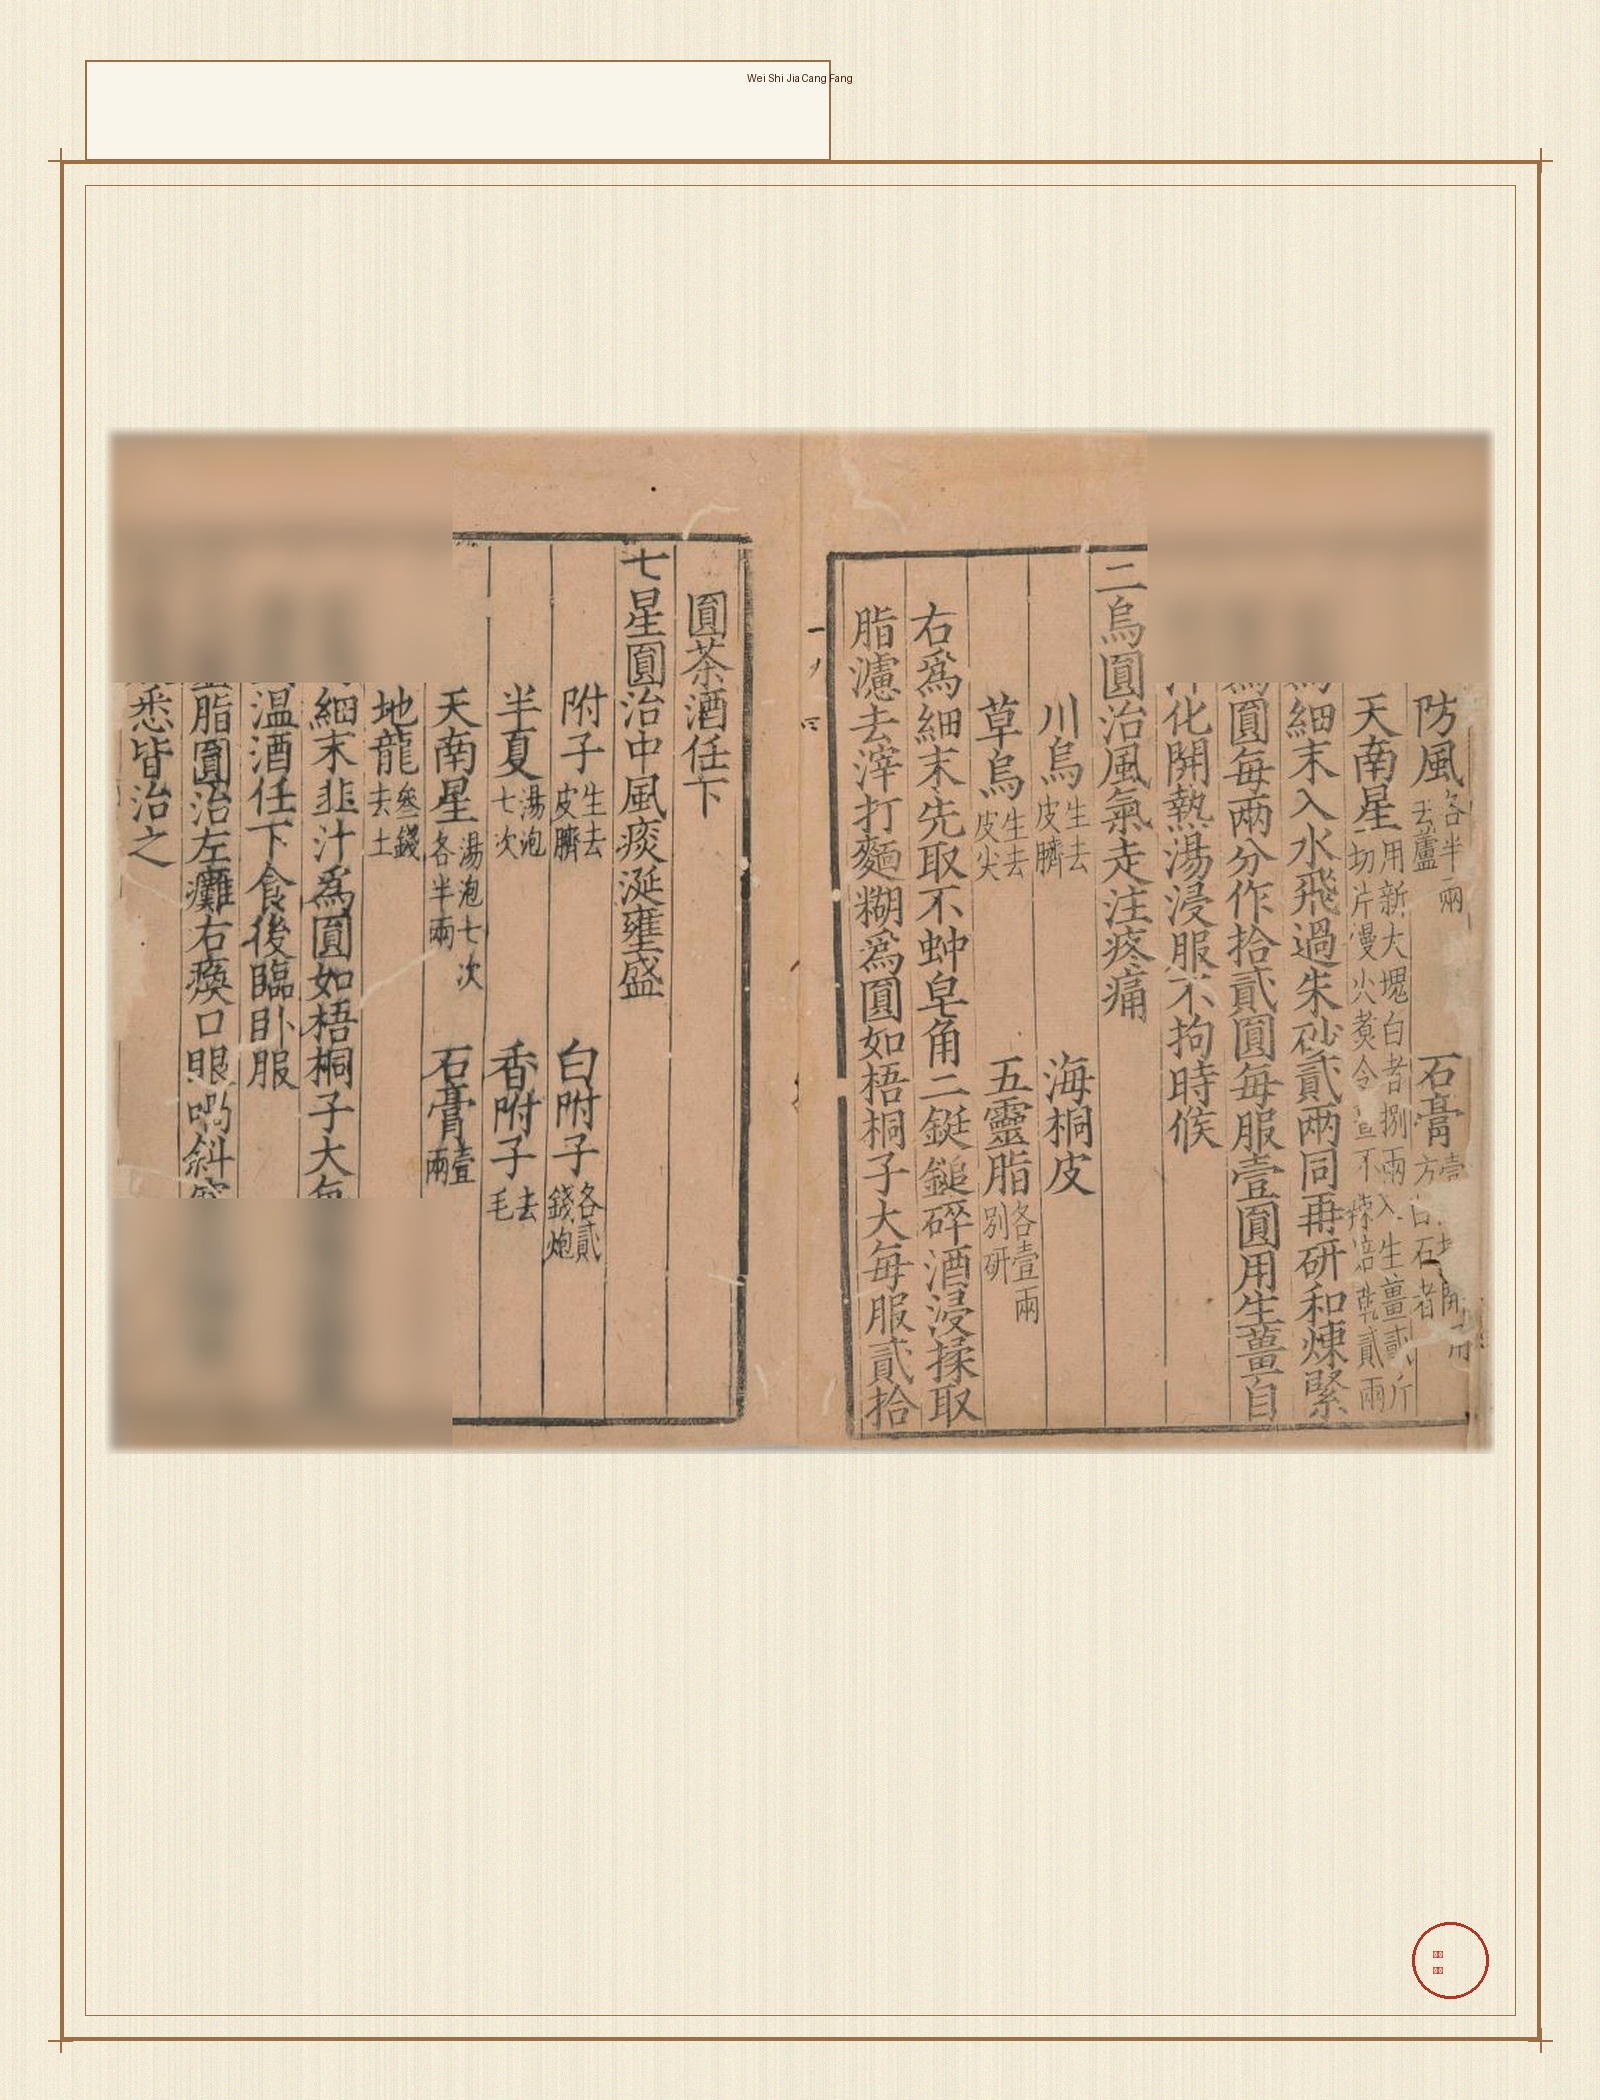 Wei Shi Jia Cang Fang
防風各半兩去蘆 石膏
天南星用新大塊白者捌兩入生薑貳斤切片慢火煑令 不 焙乾貳兩
細末入水飛過朱砂貳兩同再研和煉緊
圓每兩分作拾貳圓每服壹圓用生薑自
化開熱湯浸服不拘時候
二烏圓治風氣走注疼痛
川烏生去皮臍 海桐皮
草烏生去皮尖 五靈脂各壹兩別研
右爲細末先取不蚛皁角二鋌鎚碎酒浸揉取
脂濾去滓打麵糊爲圓如梧桐子大每服貳拾
圓茶酒任下
七星圓治中風痰涎壅盛
附子生去皮臍 白附子各貳錢炮
半夏湯泡七次 香附子去毛
天南星湯泡七次各半兩 石膏壹兩
地龍叁錢去土
細末韭汁爲圓如梧桐子大
温酒任下食後臨卧服
脂圓治左癱右瘓口眼喎斜
悉皆治之